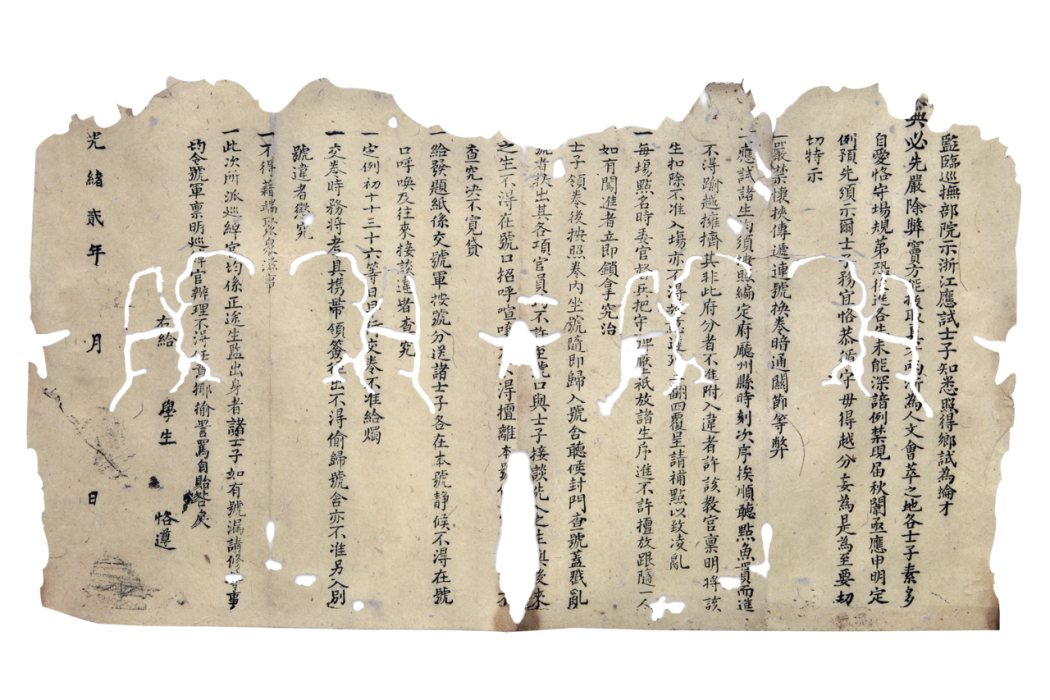 監臨巡撫部院示浙江應試士子知悉照得鄉試為掄才
典必先嚴除弊竇方能拔取真才為人文會萃之地各士子素多
自愛恪守場規第恐後進各生未能深諳例禁現届秋闈亟應申明定
例預先須示爾士子務宜恪恭循守毋得越分妄為是為至要切
切特示
嚴禁懷挾傳遞連號換卷暗通關節等弊
一應試諸生均須按照編定府廳州縣時刻次序挨順聽點魚貫而進
不得踰越擁擠其非此府分者不准附入違者許該教官禀明將該
生扣除不准入場亦不得翻四覆呈請補點以致凌亂
一每場點名時委官督兵把守彈壓祇放諸生序進不許擅放跟隨一人
如有闖進者立即鎖拿究治
士子領卷後按照卷內坐號隨即歸入號舍聽候封門查號蓋戳亂
號者扶出其各項官員不許至號口與士子接談先入之生與後來
之生不得在號口招呼喧嘩不得擅離本號
查究决不寬貸
一給發題紙係交號軍按號分送諸士子各在本號靜候不得在號
口呼喚及往來接談違者查究
一定例初十十三十六等日交卷不准給燭
一交卷時務將考具携帶領簽出不得偷歸號舍亦不准另入別
號違者懲究
一不得藉端滋事
一此次所派巡綽官均係正途生監出身者諸士子如有號漏請修等事
均令號軍禀明巡綽官辦理不得任意揶揄詈罵自貽咎戾
右給
學生
恪遵
光緒貳年
月
日